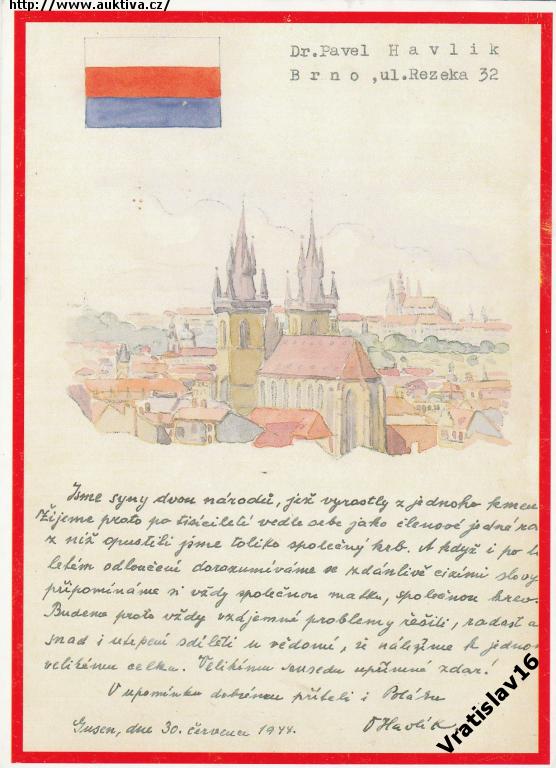 http://www.auktiva.cz/
Dr.Pavel Havlik
Brno ,ul.Rezeka 32
Jsme syny dvou národů, jež vyrostly z jednoho kmene
Žijeme proto po tisíciletí vedle sebe jako členové jedné
z níž opustili jsme toliko společný krb. A když i po
letém odloučení dorozumíváme se zdánlivě cizími slovy
připomínáme si vždy společnou matku, společnou krev.
Budeme proto vždy vzájemné problémy řešiti, radost a
snad i utrpení sdíleti u vědomí, že náležíme k
velikému celku. Velikému sousedu upřímné zdar!
V upomínku dobrému příteli i Poláku
Gusen, dne 30. července 1944.
Havlík
Vratislav16